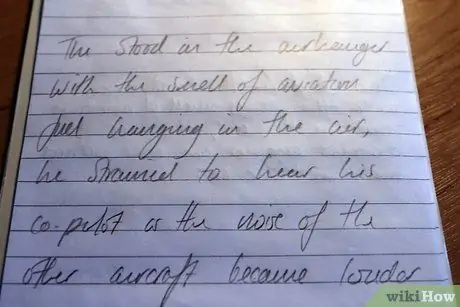 Tim stood in the airhanger
with the smell of aviation
fuel hanging in the air,
he strained to hear his
co-pilot as the noise of the
other aircraft became louder
wikiHow